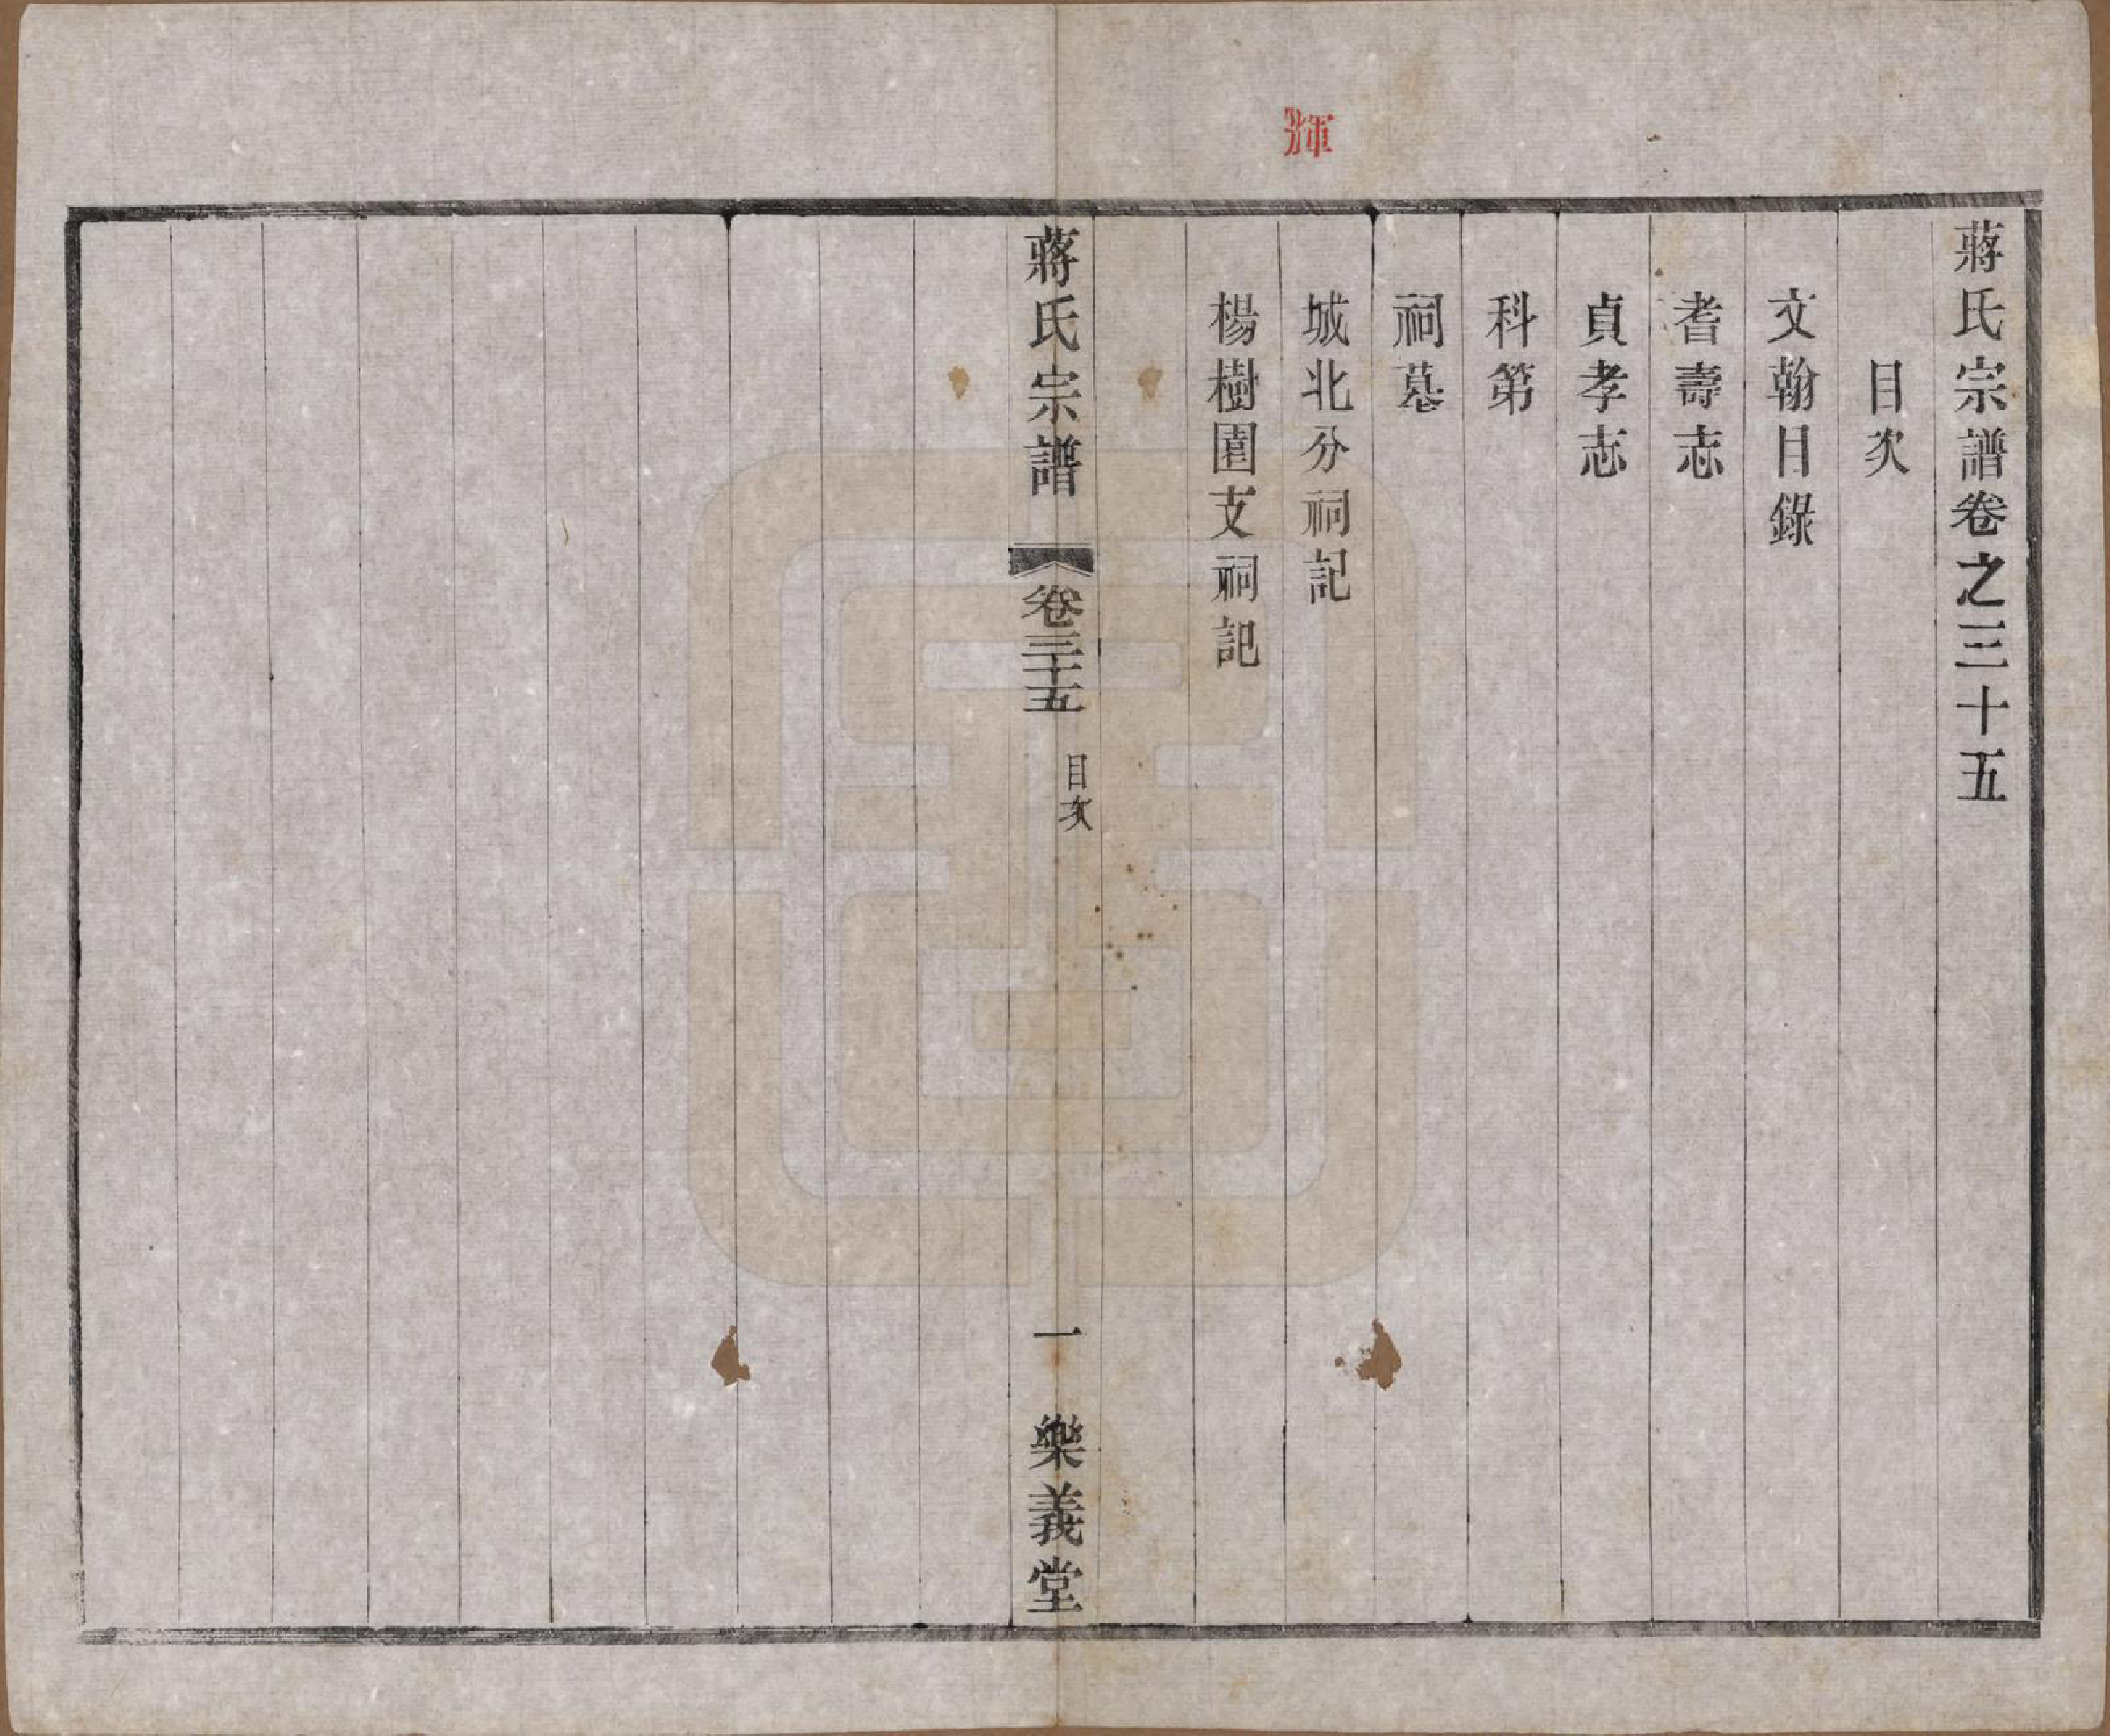 輝
蔣氏宗譜卷之三十五
目次
文翰目錄
耆壽志
貞孝志
科第
祠墓
城北分祠記
楊樹園支祠記
蔣氏宗譜 卷三十五 目次 一 樂義堂